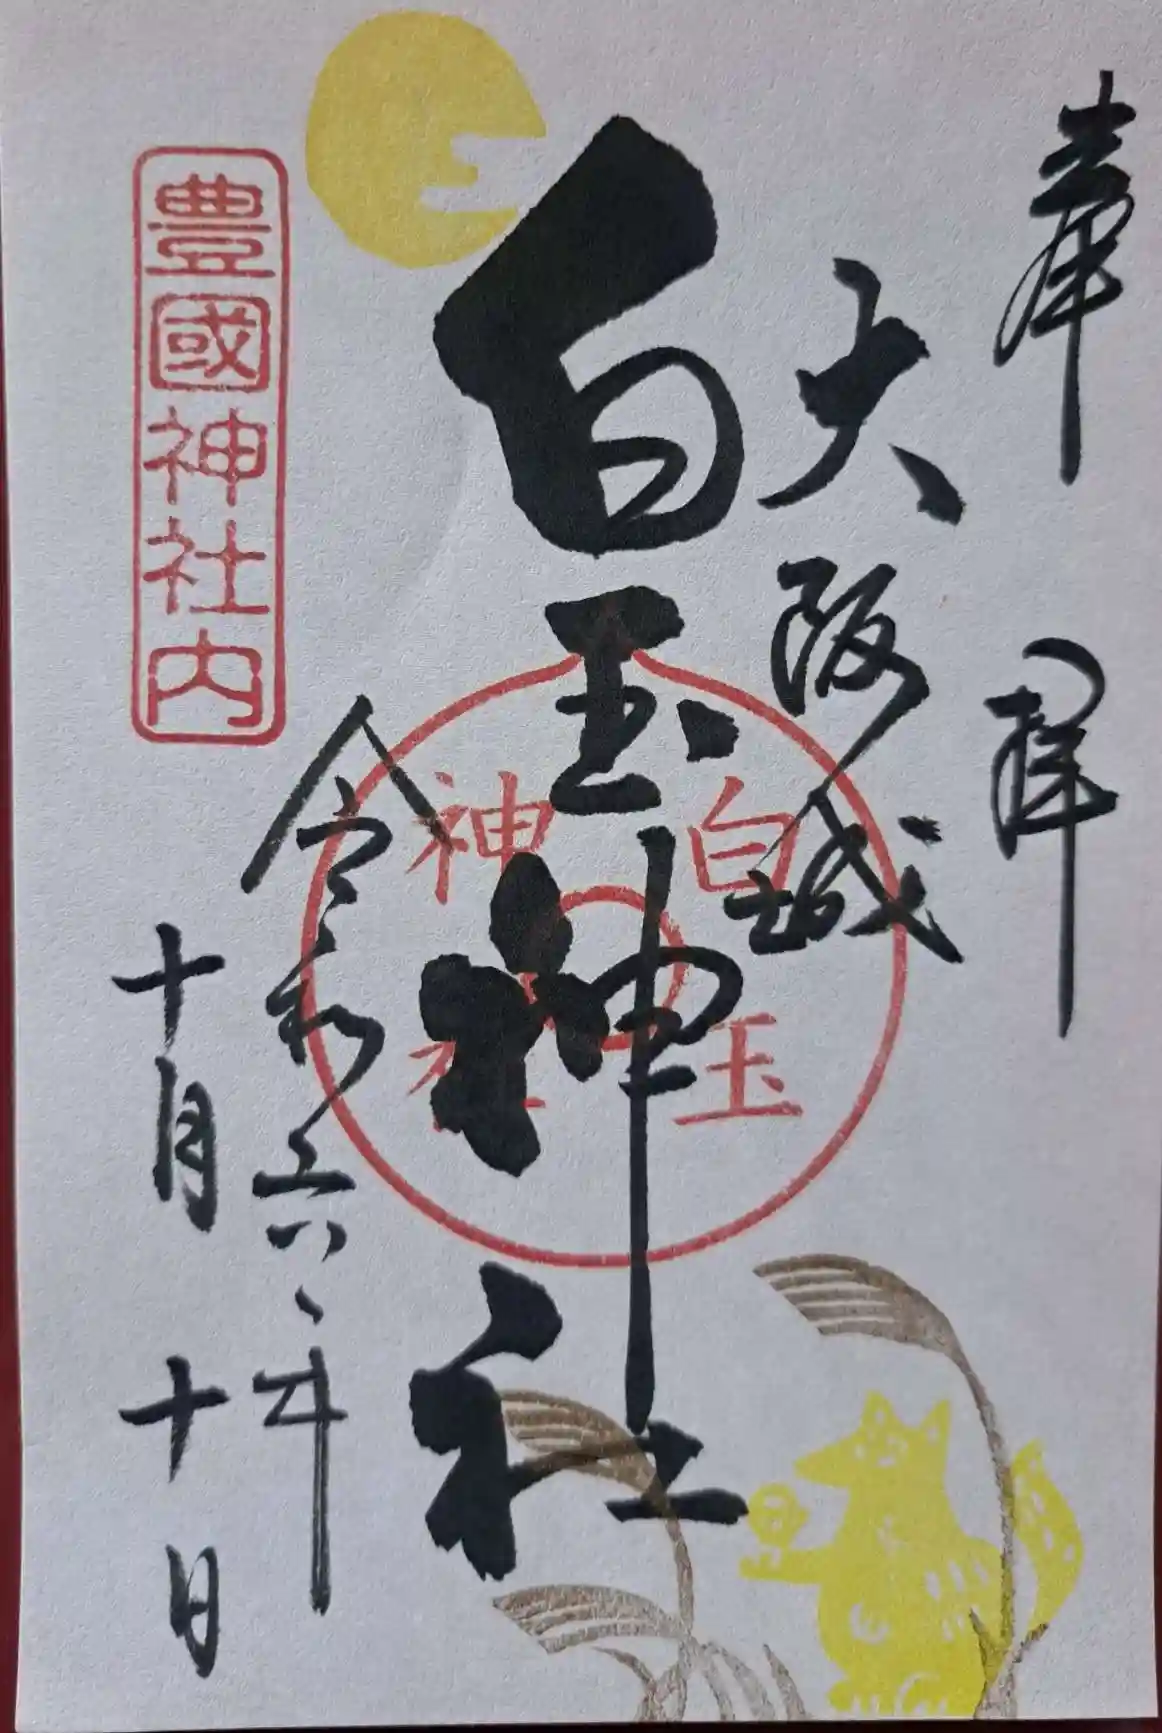 奉拝
大阪城
白玉神社
白玉
神社
令和六年
十月十日
豊國神社内